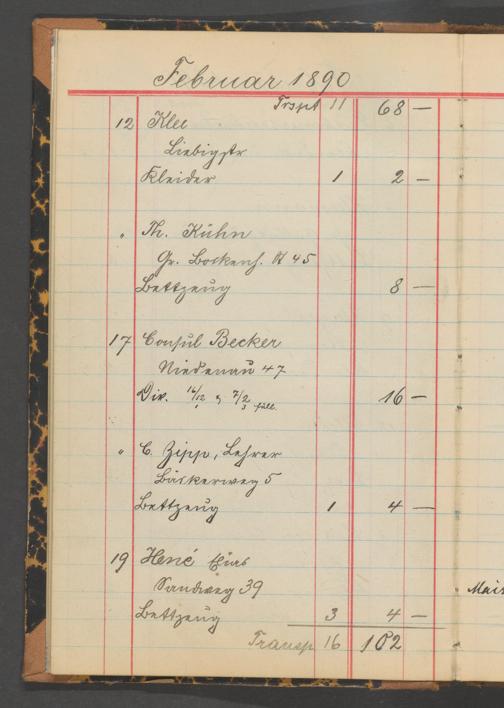 Februar 1890
Trspt 11 68 —
12 Klee
Liebigstr
Kleider 1 2 —
" Th. Kühn
Gr. Bockenh. St 45
Bettzeug 8 —
17 Consul Becker
Niedenau 47
Div. 16/12 7/2 16 —
" C. Zipp, Lehrer
Bäckerweg 5
Bettzeug 1 4 —
19 Hené
Sandweg 39
Bettzeug 3 4 —
Transp 16 102